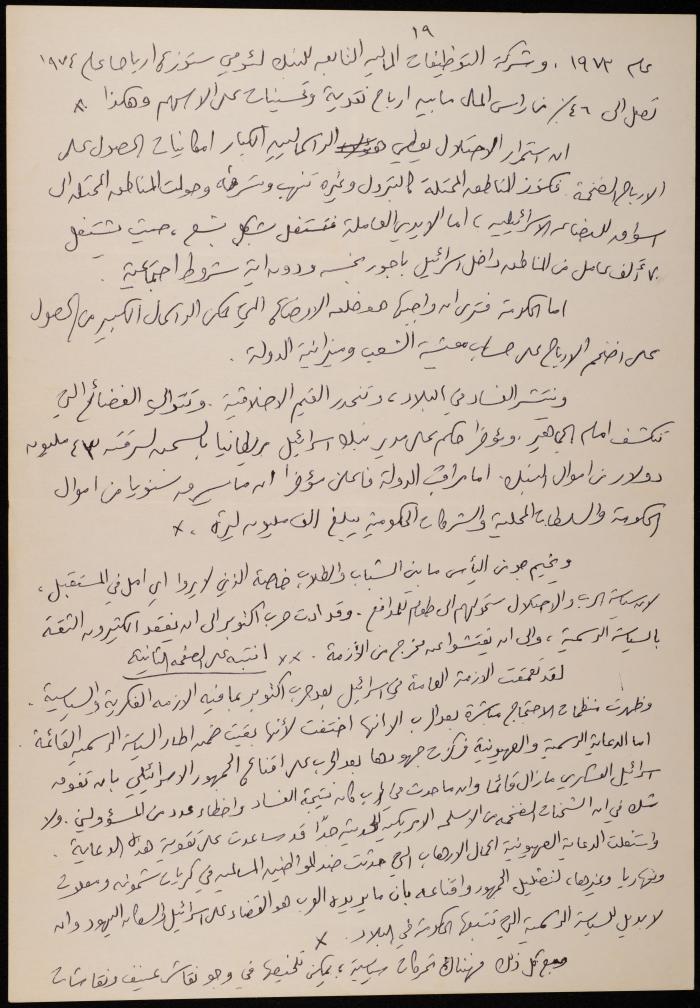 ١٩
عام ١٩٧٣. وشركة التوظيفات المالية التابعة للبنك لئومي ستوزع ارباحا عام ١٩٧٤
تصل الى ٤٦٪ من راس المال ما بين ارباح نقدية وتحسينات على الاسهم وهكذا
ان استمرار الاحتلال يعطي الراسماليين الكبار امكانيات الحصول على
الارباح الضخمة. فكنوز المناطق المحتلة كالبترول وغيره تنهب وتسرق وحولت المناطق المحتلة الى
اسواق للبضائع الاسرائيلية، اما الايدي العاملة فتستغل بشكل بشع، حيث يشتغل
ألف عامل من المناطق داخل اسرائيل باجور بخسة ودون اية شروط اجتماعية.
اما الحكومة فترى ان واجبها هو خلق الاوضاع التي تمكن الراسمال الكبير من الحصول
على اضخم الارباح على حساب معيشة الشعب وميزانية الدولة.
وينتشر الفساد في البلاد، وتنحدر القيم الاخلاقية. وتتوالى الفضائح التي
تكشف امام الجماهير. ومؤخرا حكم على مدير بنك اسرائيل بريطانيا بالسجن لسرقته مليون
دولار من اموال البنك. اما مراقب الدولة فاعلن مؤخرا ان ما يسرق سنويا من اموال
الحكومة والسلطات المحلية والشركات الحكومية يبلغ الف مليون ليرة. x
ويخيم جو من اليأس ما بين الشباب والطلاب خاصة الذين لا يروا اي امل في المستقبل،
لان سياسة الحرب والاحتلال ستحولهم الى طعام للمدافع. وقد ادت حرب اكتوبر الى ان يفقد الكثيرون الثقة
بالسياسة الرسمية، والى ان يفتشوا عن مخرج من الأزمة. xx انتبه على الصفحة الثانية
لقد تعمقت الازمة العامة في اسرائيل بعد حرب اكتوبر بما فيه الازمة الفكرية والسياسية.
وظهرت منظمات الاحتجاج مباشرة بعد الحرب الا انها اختفت لأنها بقيت ضمن اطار السياسة الرسمية القائمة.
اما الدعاية الرسمية والصهيونية فركزت جهودها بعد الحرب على اقناع الجمهور الاسرائيلي بان تفوق
اسرائيل العسكري ما زال قائما وان ما حدث في الحرب كان نتيجة الفساد واخطاء عدد من المسؤولين. ولا
شك في ان الشحنات الضخمة من الاسلحة الامريكية الحديثة جدًا قد ساعدت على تقوية هذه الدعاية.
واستغلت الدعاية الصهيونية اعمال الارهاب التي حدثت ضد المواطنين المسالمين في كريات شمونه ومعلوت
ونهاريا وغيرها، لتضليل الجمهور واقناعه بان ما يريده العرب هو القضاء على اسرائيل والسكان اليهود وان
لا بديل للسياسة الرسمية التي تتبعها الحكومة في البلاد. x
ومع كل ذلك فهنالك تحركات سياسية، يمكن تلخيصها في وجود نقاش عنيف ونقاشات